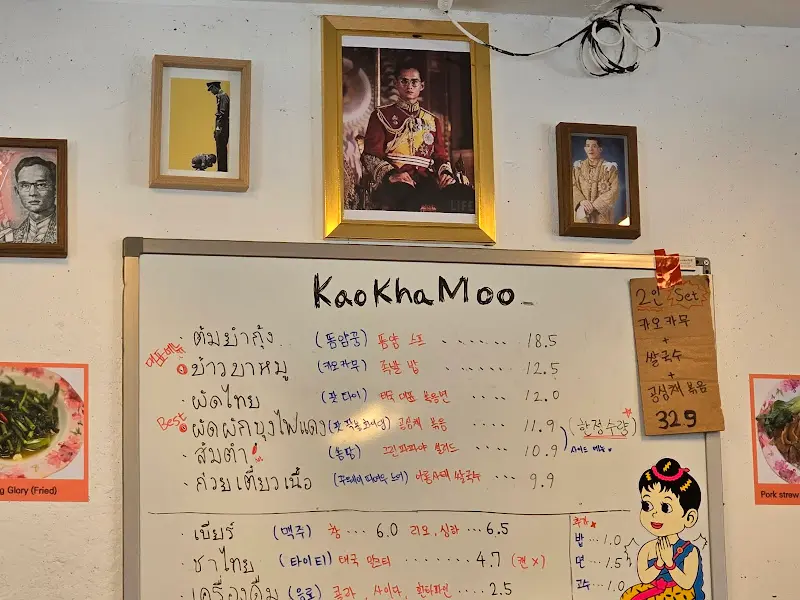 LIFE
KaoKhaMoo
ต้มยำกุ้ง (똠얌꿍) 똠얌 스프 ........ 18.5
대표메뉴
ข้าวขาหมู (카오카무) 족발 밥 ..... 12.5
ผัดไทย (팟타이) 태국 대표 볶음면 .... 12.0
Best
ผัดผักบุ้งไฟแดง 공심채 볶음 .... 11.9
(한정수량)
ส้มตำ (쏨땀) 그린 파파야 샐러드 .... 10.9
사이드 메뉴
ก๋วยเตี๋ยวเนื้อ 쌀국수 ... 9.9
เบียร์ (맥주) 창 ... 6.0 리오, 싱하 ... 6.5
ชาไทย (타이티) 태국 밀크티 ........ 4.7 (캔 X)
เครื่องดื่ม (음료) 콜라, 사이다, 환타파인 .... 2.5
추가
밥 ... 1.0
면 ... 1.5
고수 ... 1.0
2인 Set
카오카무
+
쌀국수
+
공심채 볶음
329
g Glory (Fried)
Pork strew